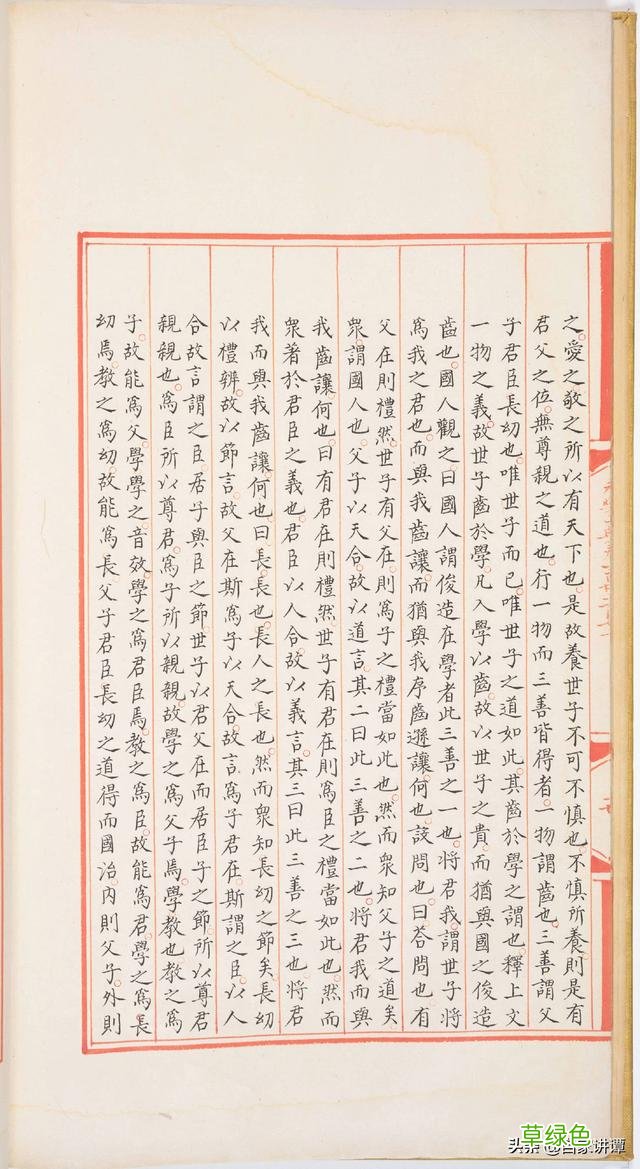 之愛之敬之所以有天下也是故養世子不可不慎也不慎所養則是有
君父之位無尊親之道也行一物而三善皆得者一物謂齒也三善謂父
子君臣長幼也唯世子而已唯世子之道如此其齒於學之謂也釋上文
一物之義故世子齒於學凡入學以齒故以世子之貴而猶與國之俊造
齒也國人觀之曰國人謂俊造在學者此三善之一也將君我謂世子將
爲我之君也而與我齒讓而猶與我序齒遜讓何也設問也曰荅問也有
父在則禮然世子有父在則爲子之禮當如此也然而衆知父子之道矣
衆謂國人也父子以天合故以道言其二曰此三善之二也將君我而與
我齒讓何也曰有君在則禮然世子有君在則爲臣之禮當如此也然而
衆著於君臣之義也君臣以人合故以義言其三曰此三善之三也將君
我而與我齒讓何也曰長長也長人之長也然而衆知長幼之節矣長幼
以禮辨故以節言故父在斯爲子以天合故言爲子君在斯謂之臣以人
合故言謂之臣居子與臣之節世子以君父在而居臣子之節所以尊君
親親也爲臣所以尊君爲子所以親親故學之爲父子焉學教也教之爲
子故能爲父學學之音效學之爲君臣焉教之爲臣故能爲君學之爲長
幼焉教之爲幼故能爲長父子君臣長幼之道得而國治內則父子外則
草绿色
头条 @百家讲谭